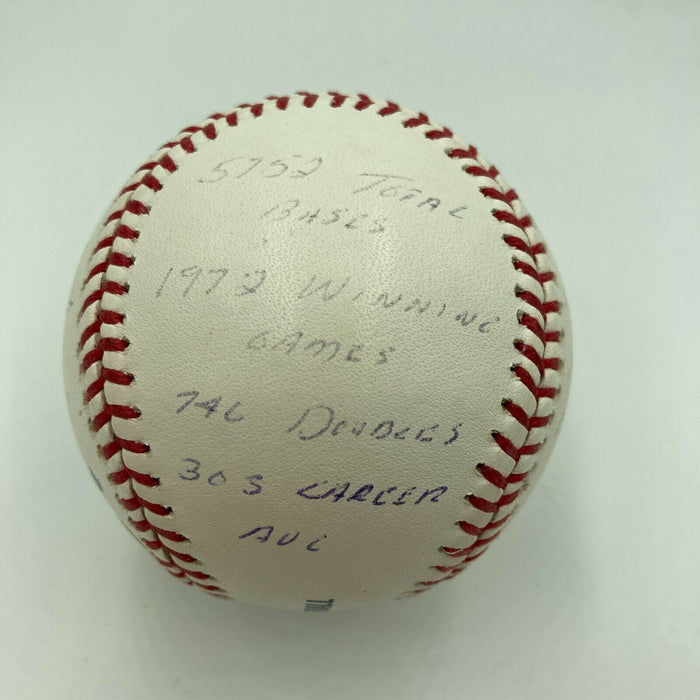 5752 TOTAL
BASES
1972 WINNING
GAMES
746 DOUBLES
303 CAREER
AVG